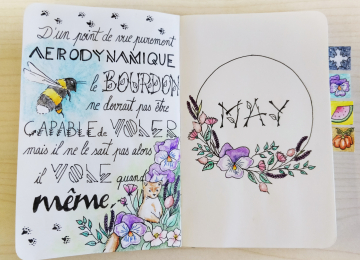 D'un point de vue purement
AERODYNAMIQUE
le BOURDON
ne devrait pas être
CAPABLE de VOLER
mais il ne le sait pas alors
il VOLE quand
même.
MAY